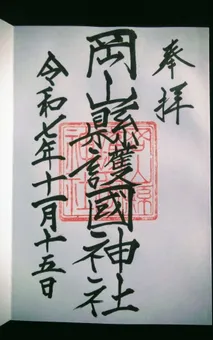 奉拝
岡山縣護國神社
令和七年十一月十五日